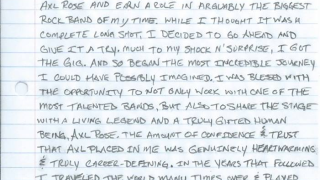 AXL ROSE AND EARN A ROLE IN ARGUABLY THE BIGGEST
ROCK BAND OF MY TIME. WHILE I THOUGHT IT WAS A
COMPLETE LONG SHOT, I DECIDED TO GO AHEAD AND
GIVE IT A TRY. MUCH TO MY SHOCK N' SURPRISE, I GOT
THE GIG. AND SO BEGAN THE MOST INCREDIBLE JOURNEY
I COULD HAVE POSSIBLY IMAGINED. I WAS BLESSED WITH
THE OPPORTUNITY TO NOT ONLY WORK WITH ONE OF THE
MOST TALENTED BANDS, BUT ALSO TO SHARE THE STAGE
WITH A LIVING LEGEND AND A TRULY GIFTED HUMAN
BEING, AXL ROSE. THE AMOUNT OF CONFIDENCE & TRUST
THAT AXL PLACED IN ME WAS GENUINELY HEARTWARMING
& TRULY CAREER-DEFINING. IN THE YEARS THAT FOLLOWED
I TRAVELED THE WORLD MANY TIMES OVER & PLAYED